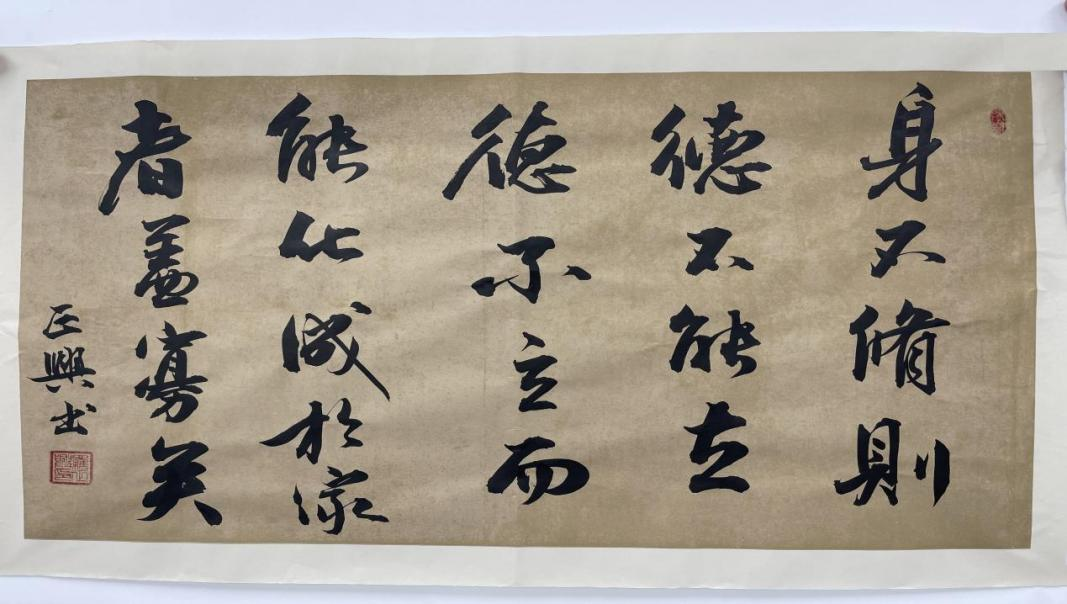 身不脩則
德不能立
德不立而
能化成於家
者盖寡矣
正興书